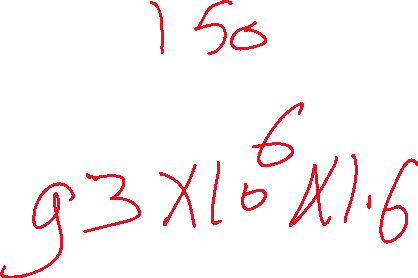 150
93×10⁶×1.6